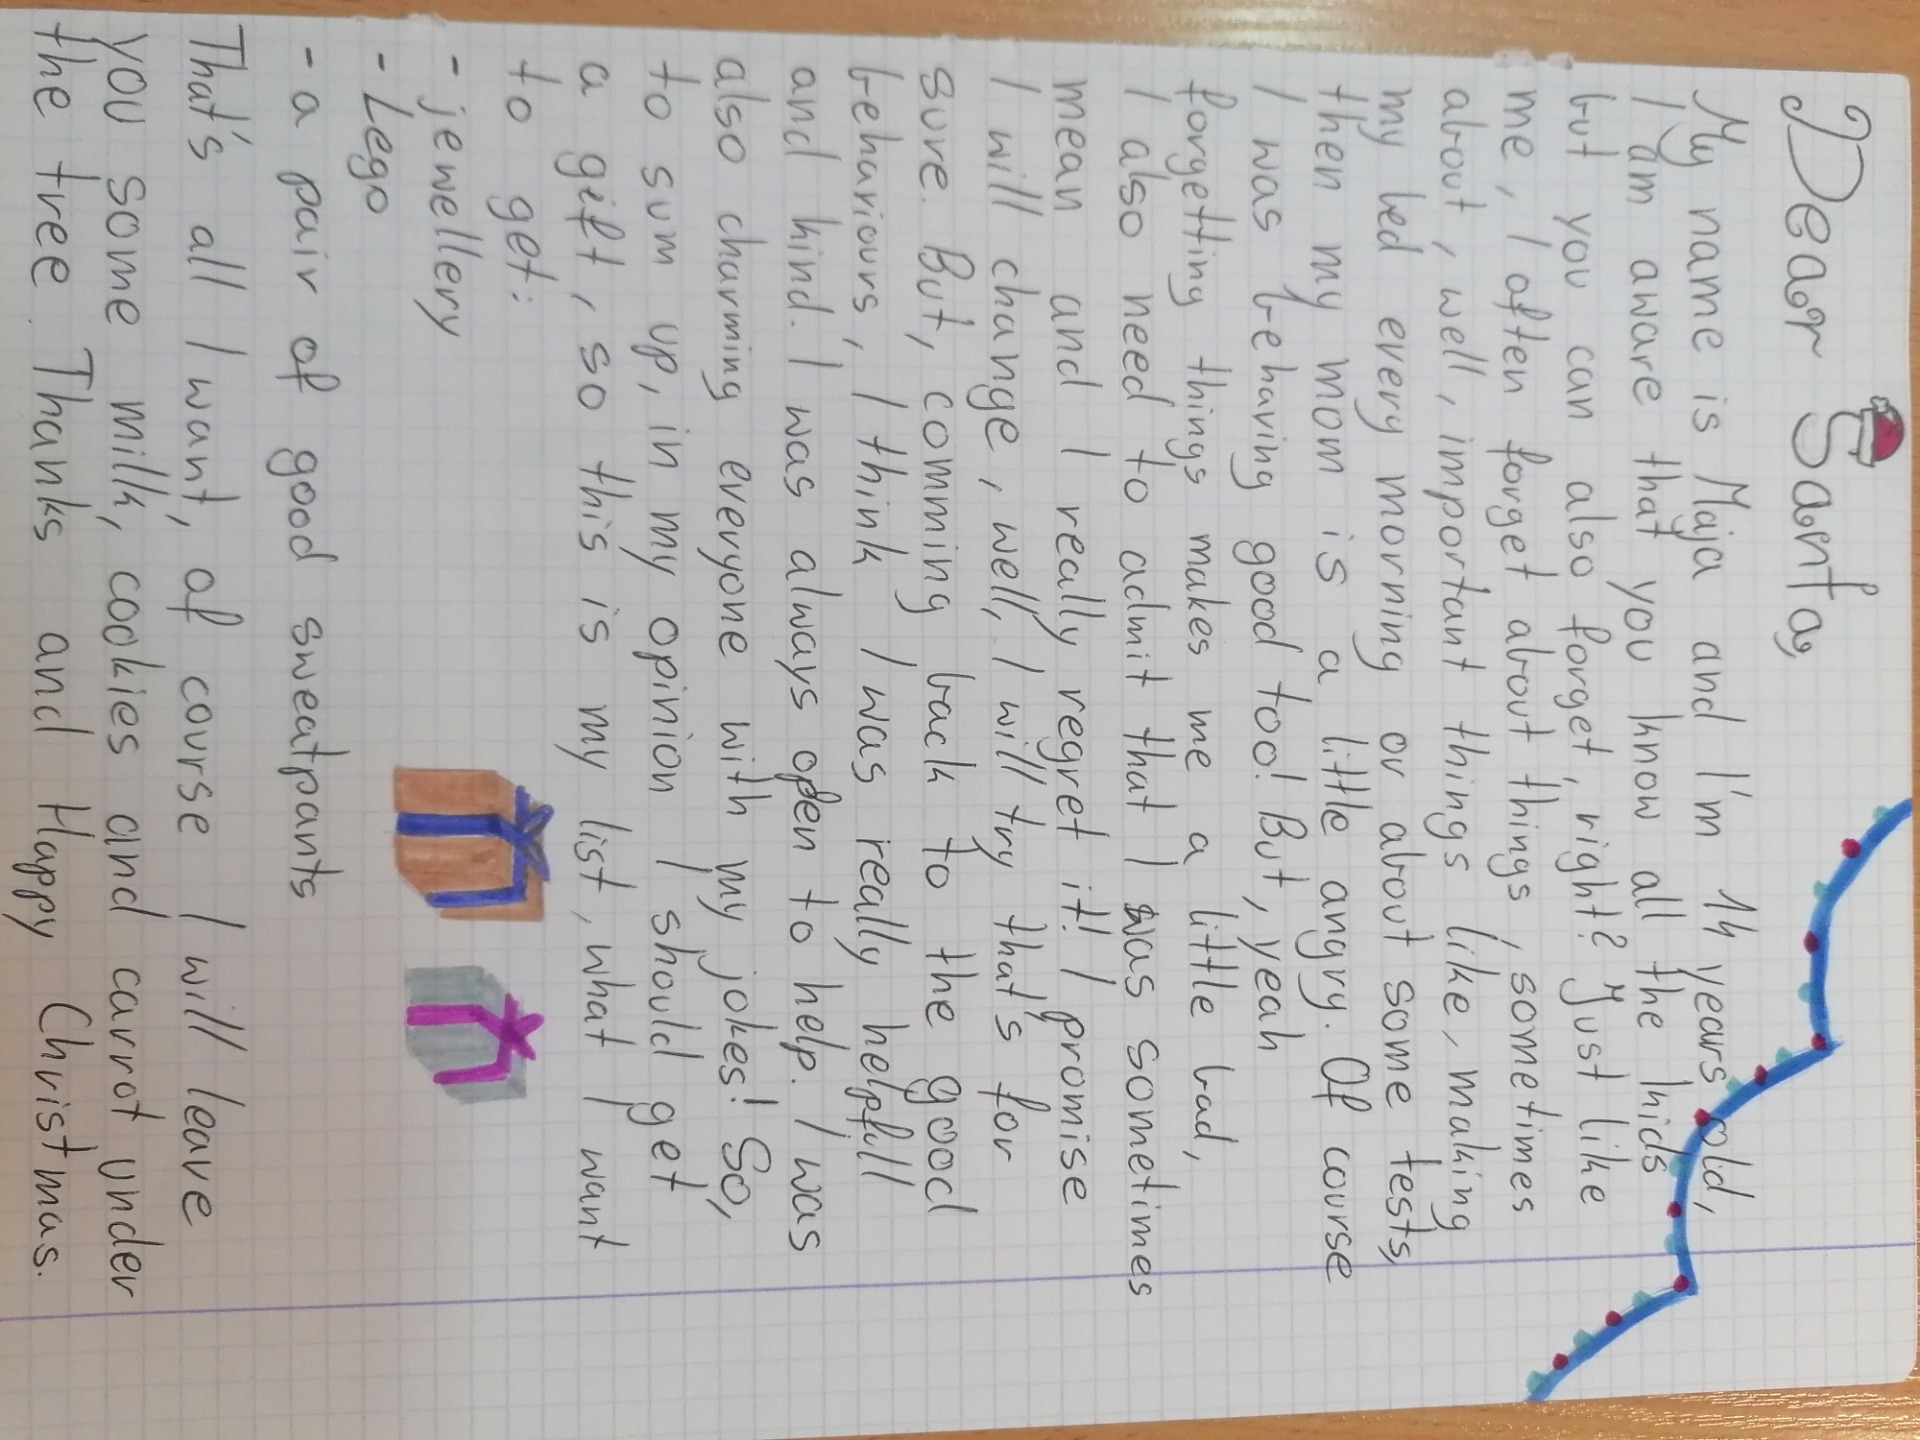 Dear Santa,
My name is Maja and I'm 14 years old,
I am aware that you know all the kids
but you can also forget, right? Just like
me, I often forget about things, sometimes
about, well, important things like, making
my bed every morning or about some tests,
then my mom is a little angry. Of course
I was behaving good too! But, yeah
forgetting things makes me a little bad,
I also need to admit that I was sometimes
mean and I really regret it! I promise
I will change, well, I will try that's for
sure. But, comming back to the good
behaviours, I think I was really helpfull
and kind. I was always open to help. I was
also charming everyone with my jokes! So,
to sum up, in my opinion I should get
a gift, so this is my list, what I want
to get:
- jewellery
- Lego
- a pair of good sweatpants
That's all I want, of course I will leave
you some milk, cookies and carrot under
the tree. Thanks and Happy Christmas.